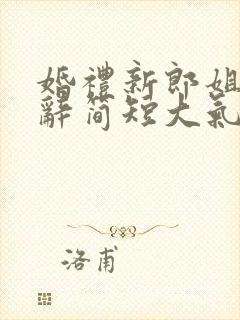 婚禮新郎姐
辭简短大氣
洛甫